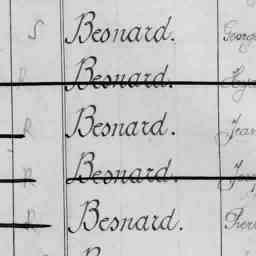 S Besnard. George
R Besnard.
R Besnard. Jean
R Besnard.
R Besnard. Pierre